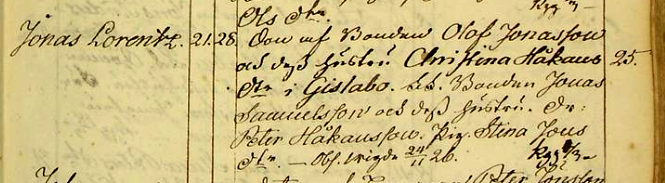 Ols Dtr.
Jonas Lorentz. 21. 28. Son af Bonden Olof Jonasson
och dess hustru Christina Håkans 25.
Dtr i Gislabo. Bonden Jonas
Samuelsson och dess hustru. Dr:
Peter Håkansson. Pig. Stina Jons
Dtr. — Obs. wigde 24/11 26.
Peter Jonsson